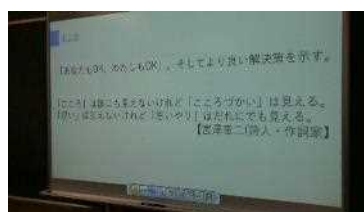 「あなたもOK、わたしもOK」、そしてより良い解決策を示す。
「こころ」は誰にも見えないけれど「こころづかい」は見える。
「思い」は見えないけれど「思いやり」はだれにでも見える。
【宮澤章二(詩人・作詞家】